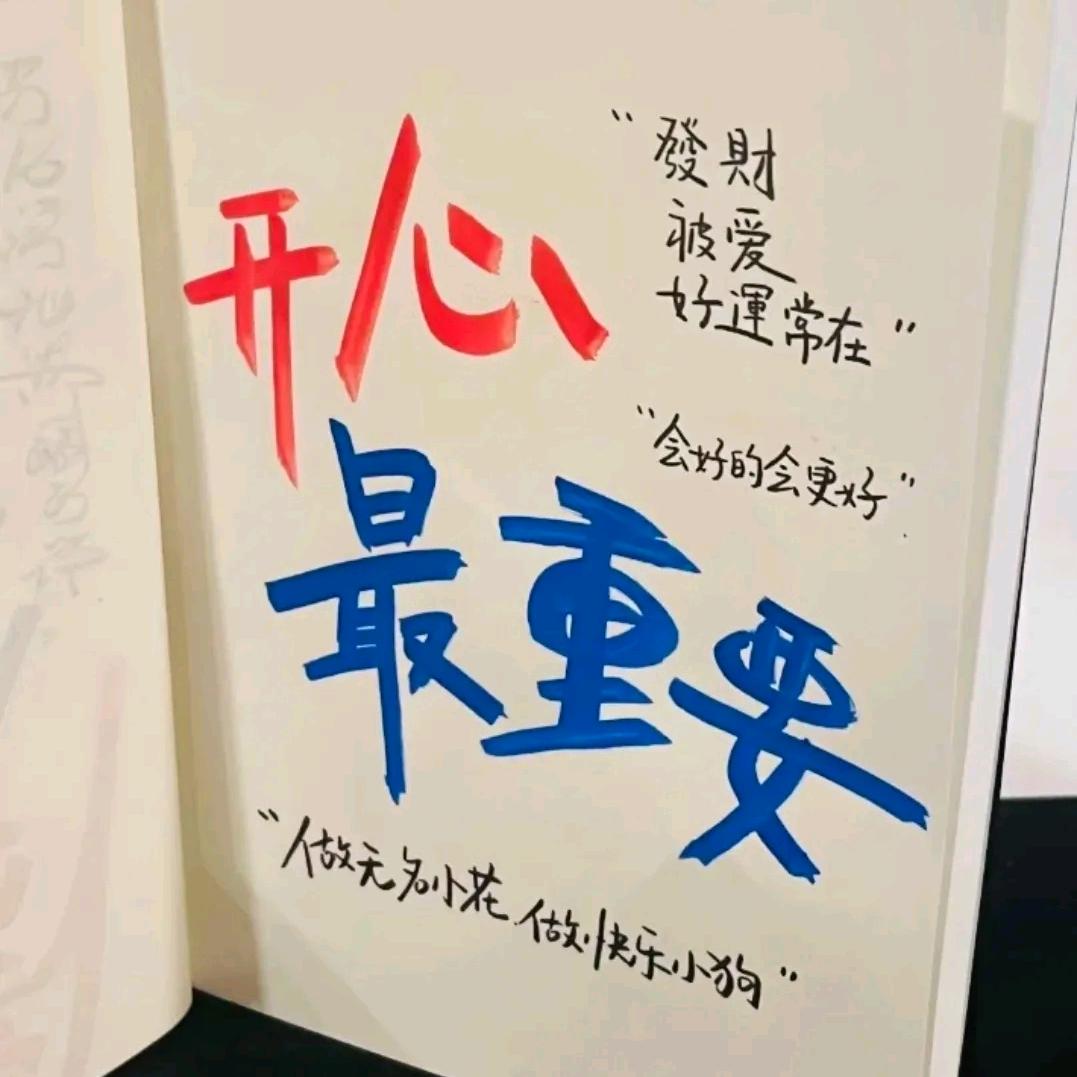 开心
最重要
“發財
被爱
好運常在”
“会好的会更好”
“做无名小花 做快乐小狗”